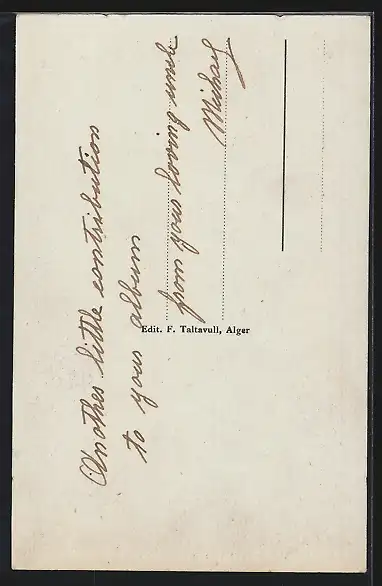 Another little contribution
to your album
from your loving niece
Edit. F. Taltavull, Alger